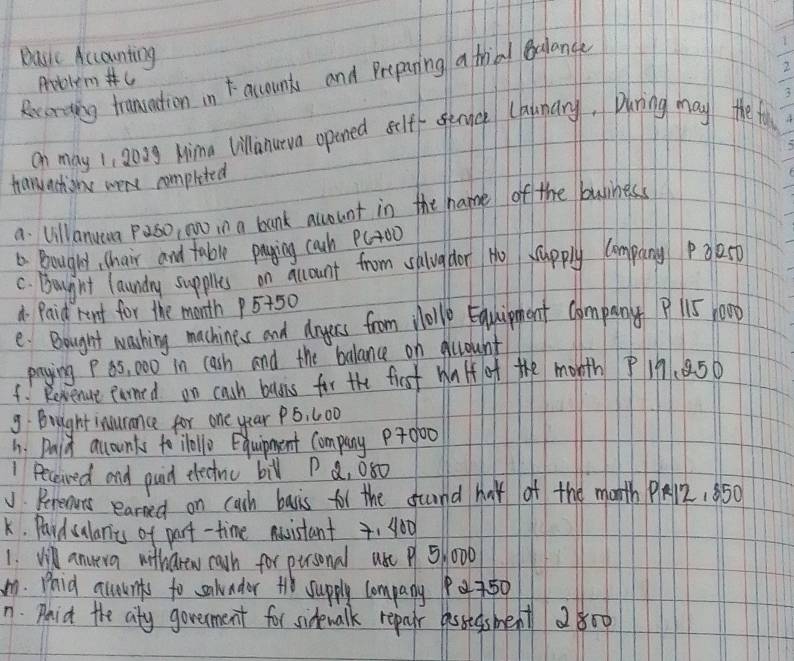 Basic Accounting
Problem #6
Recording transaction in t-accounts and Preparing a trial Balance
On may 1, 2029 Mima Villanueva opened self-service Laundry. During may the
transactions were completed
a. Villanueva P250,000 in a bank account in the name of the business
b. Bought, chair and table paying cash P6700
c. Bought laundry supplies on account from salvador Ho supply Company P 3250
d. Paid rent for the month P 5750
e. Bought washing machines and dryers from iloilo Equipment Company P 115,000
paying P 85,000 in cash and the balance on account
f. Revenue earned on cash basis for the first half of the month P 19,250
g. Bought insurance for one year P5,600
h. Paid accounts to iloilo Equipment Company P7000
i Received and paid electric bill P 2,080
J. Revenues earned on cash basis for the second half of the month P 12,850
K. Paid salaries of part-time assistant 7,400
l. Villanueva withdrew cash for personal use P 5,000
m. Paid accounts to salvador Ho supply Company P 2750
n. Paid the city goverment for sidewalk repair assessment 2800
1
2
3
4
5
6